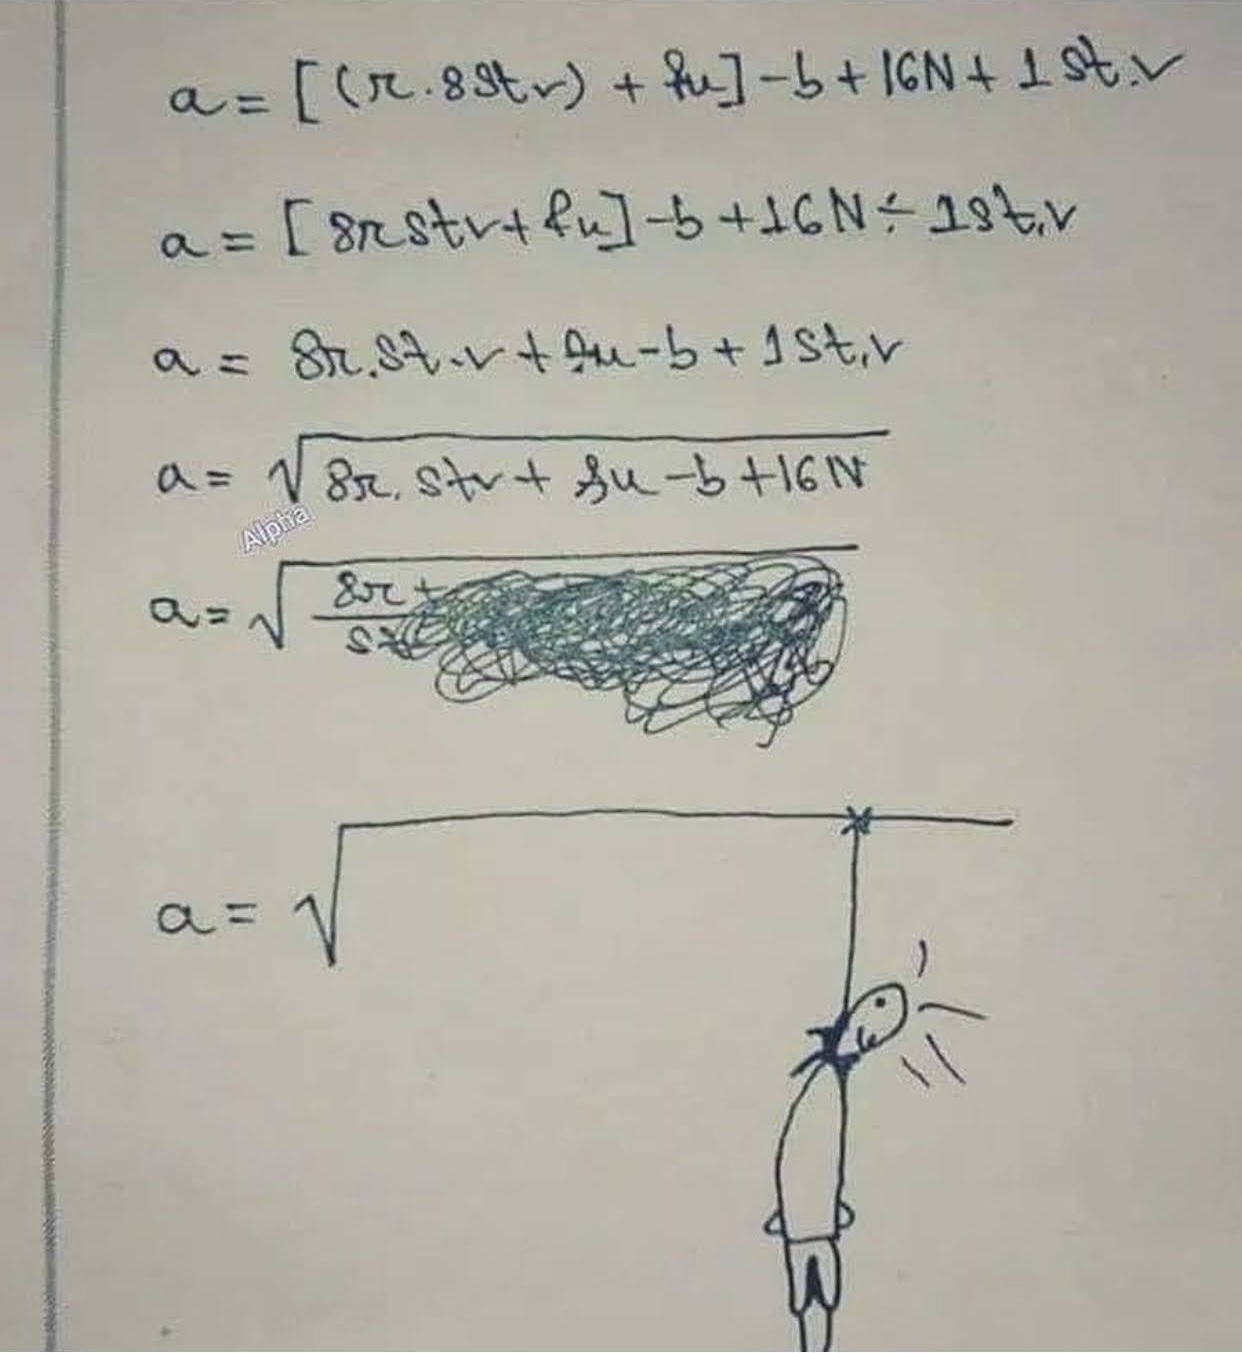 a = [(r . 8stv) + fu] - b + 16N + 1st.v
a = [8rstv + fu] - b + 16N ÷ 1st.v
a = 8r.st.v + fu - b + 1st.v
a = √8r. stv + fu - b + 16N
Alpha
a = √8r +
st
a = √